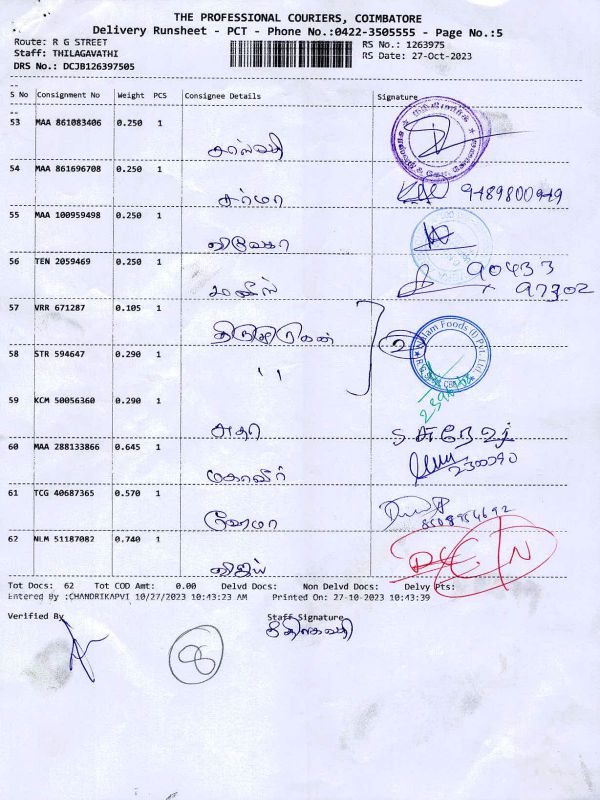 THE PROFESSIONAL COURIERS, COIMBATORE
Delivery Runsheet - PCT - Phone No.:0422-3505555 - Page No.:5
Route: R G STREET RS No.: 1263975
Staff: THILAGAVATHI RS Date: 27-Oct-2023
DRS No.: DCJB126397505
S No Consignment No Weight PCS Consignee Details Signature
53 MAA 861083406 0.250 1
54 MAA 861696708 0.250 1
சர்மா 9489800949
55 MAA 100959498 0.250 1
56 TEN 2059469 0.250 1
90433
97302
57 VRR 671287 0.105 1
2
58 STR 594647 0.290 1
" 
59 KCM 50056360 0.290 1
60 MAA 288133866 0.645 1
மகாவீர்
61 TCG 40687365 0.570 1
ஹேமா
62 NLM 51187082 0.740 1
விஜய்
Tot Docs: 62 Tot COD Amt: 0.00 Delvd Docs: Non Delvd Docs: Delvy Pts:
Entered By :CHANDRIKAPVI 10/27/2023 10:43:23 AM Printed On: 27-10-2023 10:43:39
Verified By Staff Signature
8